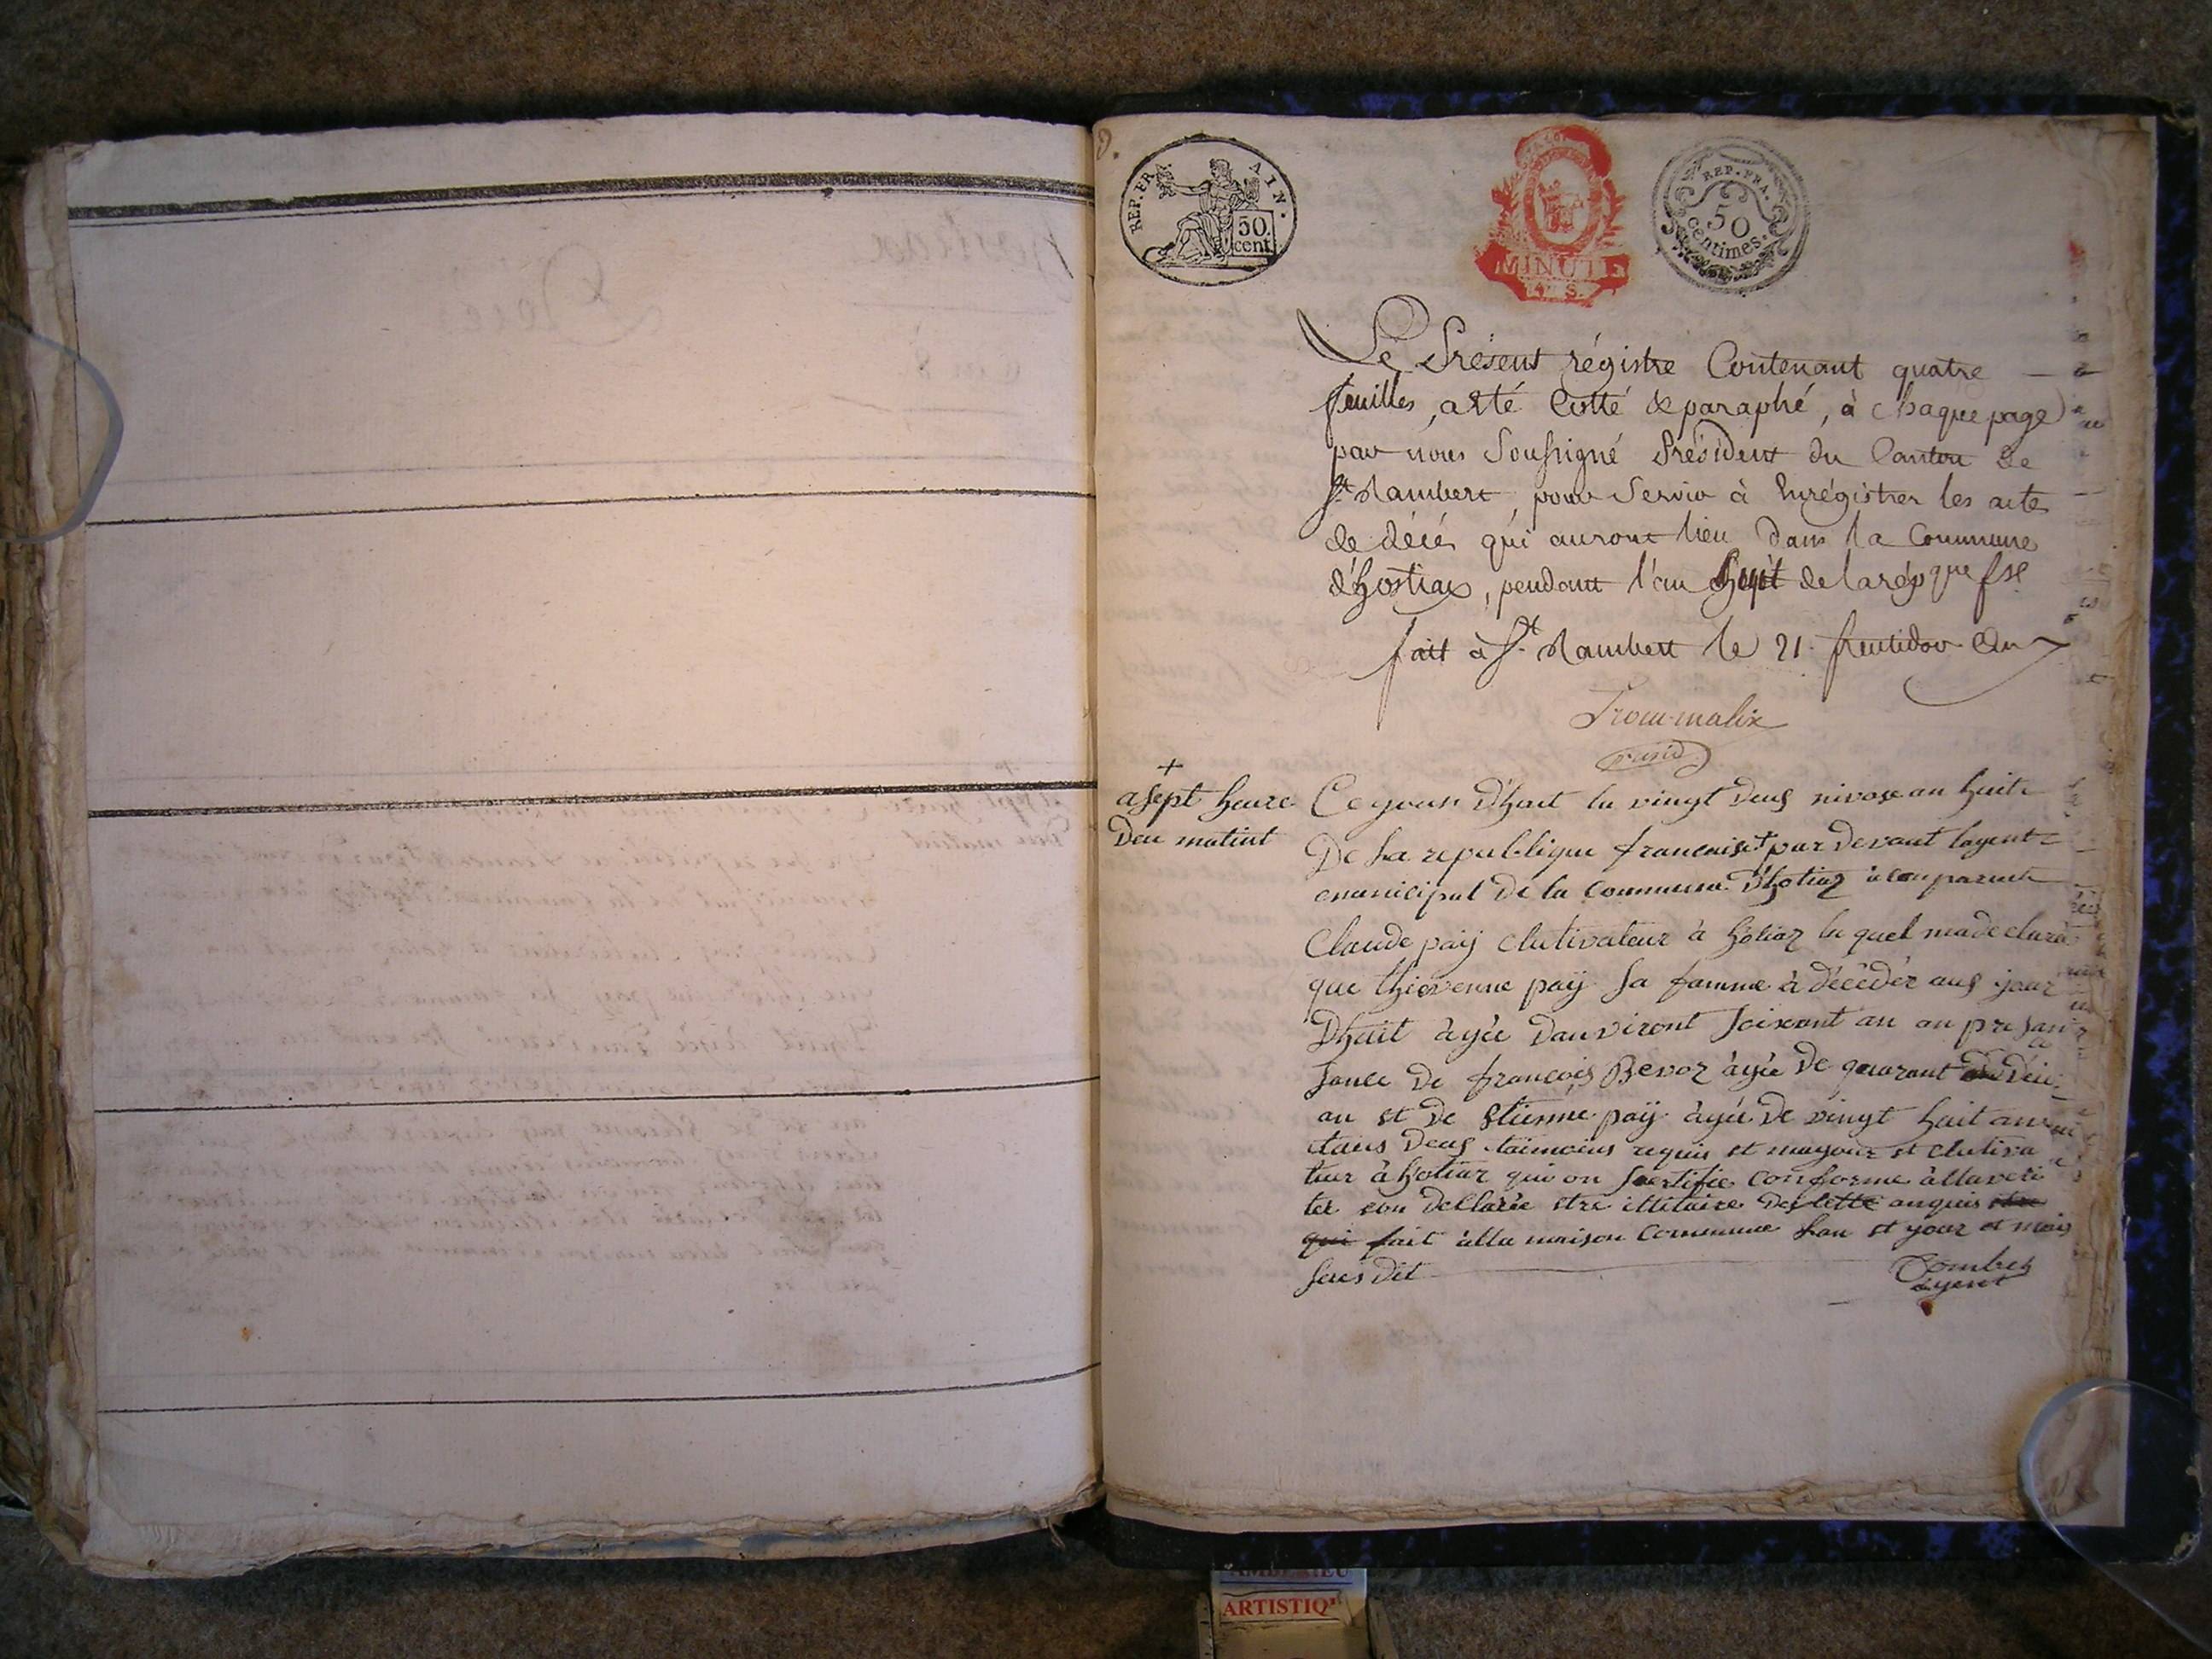 REP. FRA. AIN.
50.
cent.
MINUTE
REP. FRA.
50
centimes.
Le Présent régistre Contenant quatre
feuilles, a été Cotté & paraphé, à chaque page
par nous Soussigné Président du Canton de
St. Rambert, pour Servir à Enrégistrer les actes
de décés qui auront lieu dans la Commune
d'hostiax, pendant l'an de la répque fse
fait à St. Rambert le 21. fructidor an 7
présid
+
a sept heure
Deu matint
Ce jour D'huit lu vingt Deus nivose an huite
De La republique francaise + par devant lagent
municipal De la Commune D'hotiaz a comparut
Claude paÿ clutivateur à hotiaz lu quel ma declaré
que thievenne paÿ sa famme à décédér aus jour
Dhuit àgée Danviront soixant an an presan
sance De francois Bevoz àgée De quarant Deu
an et De Etienne paÿ àgée De vingt huit an
tous Deus taimoins requis et mayour et clutiva
teur à hotiaz qui on sertifie conforme àlla veri
ter eou declarée etre illitaire Des lettre anquis
qui fait àlla maison Commune Lan et jour et mois
sus Dit
Combet
agent
ARTISTIQ